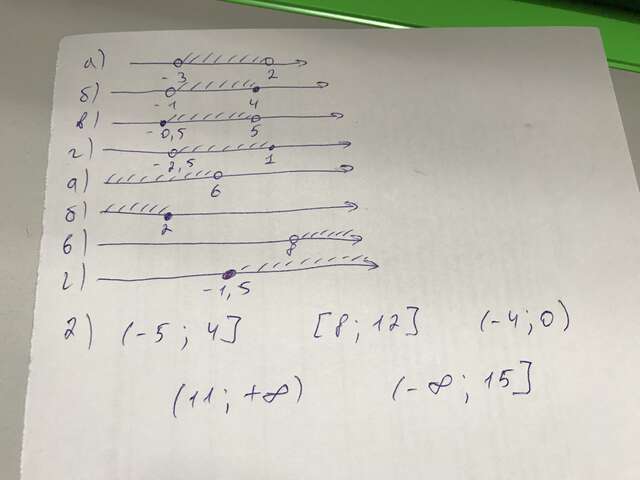 а)
-3 2
б)
-1 4
в)
-0,5 5
г)
-2,5 1
а)
6
б)
2
в)
8
г)
-1,5
2) (-5; 4] [8; 12] (-4; 0)
(11; +∞) (-∞; 15]